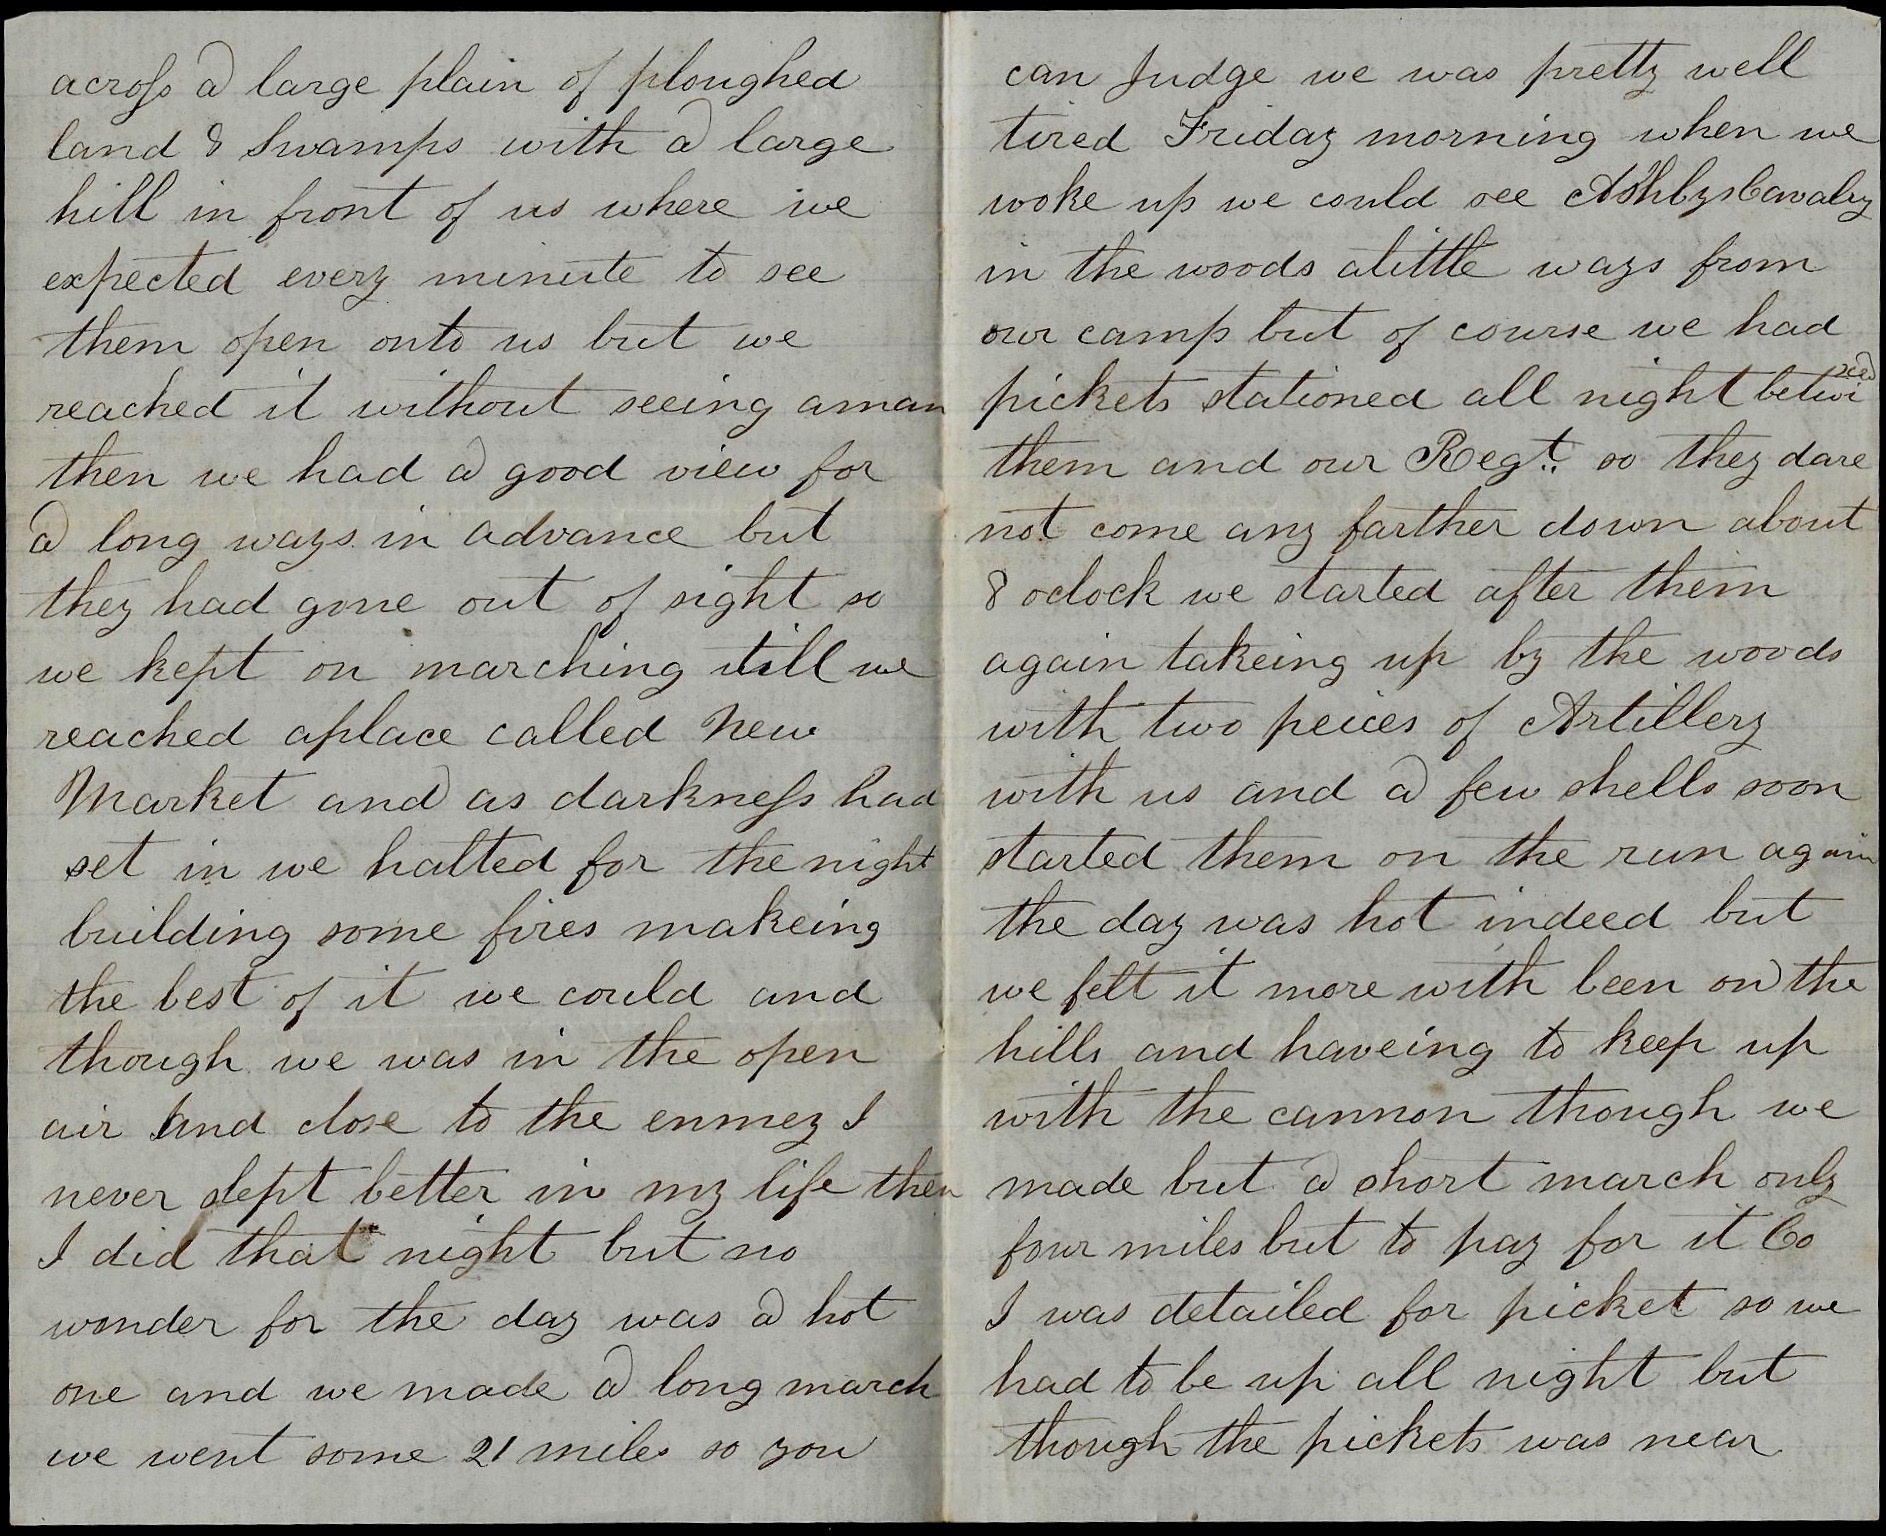 across a large plain of ploughed
land & Swamps with a large
hill in front of us where we
expected every minute to see
them open onto us but we
reached it without seeing aman
then we had a good view for
a long ways in advance but
they had gone out of sight so
we kept on marching till we
reached aplace called New
Market and as darkness had
set in we halted for the night
building some fires makeing
the best of it we could and
though we was in the open
air and close to the enmey I
never slept better in my life then
I did that night but no
wonder for the day was a hot
one and we made a long march
we went some 21 miles so you
can Judge we was pretty well
tired Friday morning when we
woke up we could see Ashbys Cavalry
in the woods alittle ways from
our camp but of course we had
pickets stationed all night betwixed
them and our Regt. so they dare
not come any farther down about
8 oclock we started after them
again takeing up by the woods
with two peices of Artillery
with us and a few shells soon
started them on the run again
the day was hot indeed but
we felt it more with been on the
hills and haveing to keep up
with the cannon though we
made but a short march only
four miles but to pay for it Co
I was detailed for picket so we
had to be up all night but
though the pickets was near